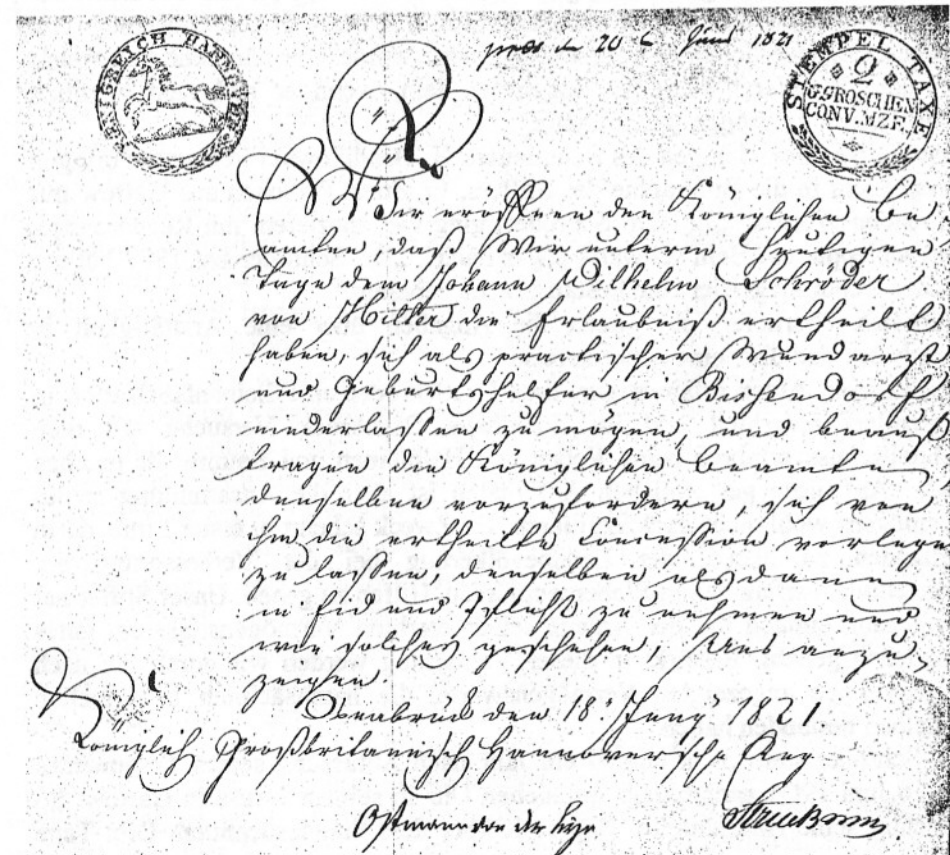 KÖNIGREICH HANNOVER
den 20 Juni 1821
STEMPEL TAXE
2
G.GROSCHEN
CONV.MZE.
Wir eröffnen den Königlichen Be
amten, daß Wir unterm heutigen
Tage dem Johann Wilhelm Schröder
von Hilter die Erlaubniß ertheilt
haben, sich als practischer Wundarzt
und Geburtshelfer in Bissendorf
niederlassen zu mögen, und beauf
tragen die Königlichen Beamte
denselben vorzufordern, sich von
ihm die ertheilte Concession vorlegen
zu lassen, denselben alsdann
in Eid und Pflicht zu nehmen und
wie solches geschehen, Uns anzu-
zeigen.
Osnabrück den 18. Juny 1821.
Königlich Großbritannisch Hannoversche Reg
Ostmann von der Leye
Struckmann